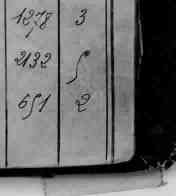 1278 3
2132 5
651 2